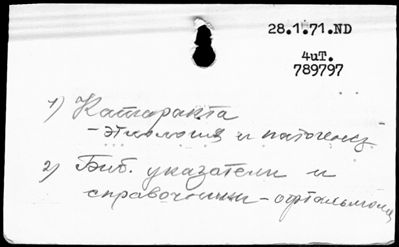 28.1.71.ND
4иT.
789797
1) Катаракта
- этиология и патогенез
2) Биб. указатели и
справочники - офтальмология